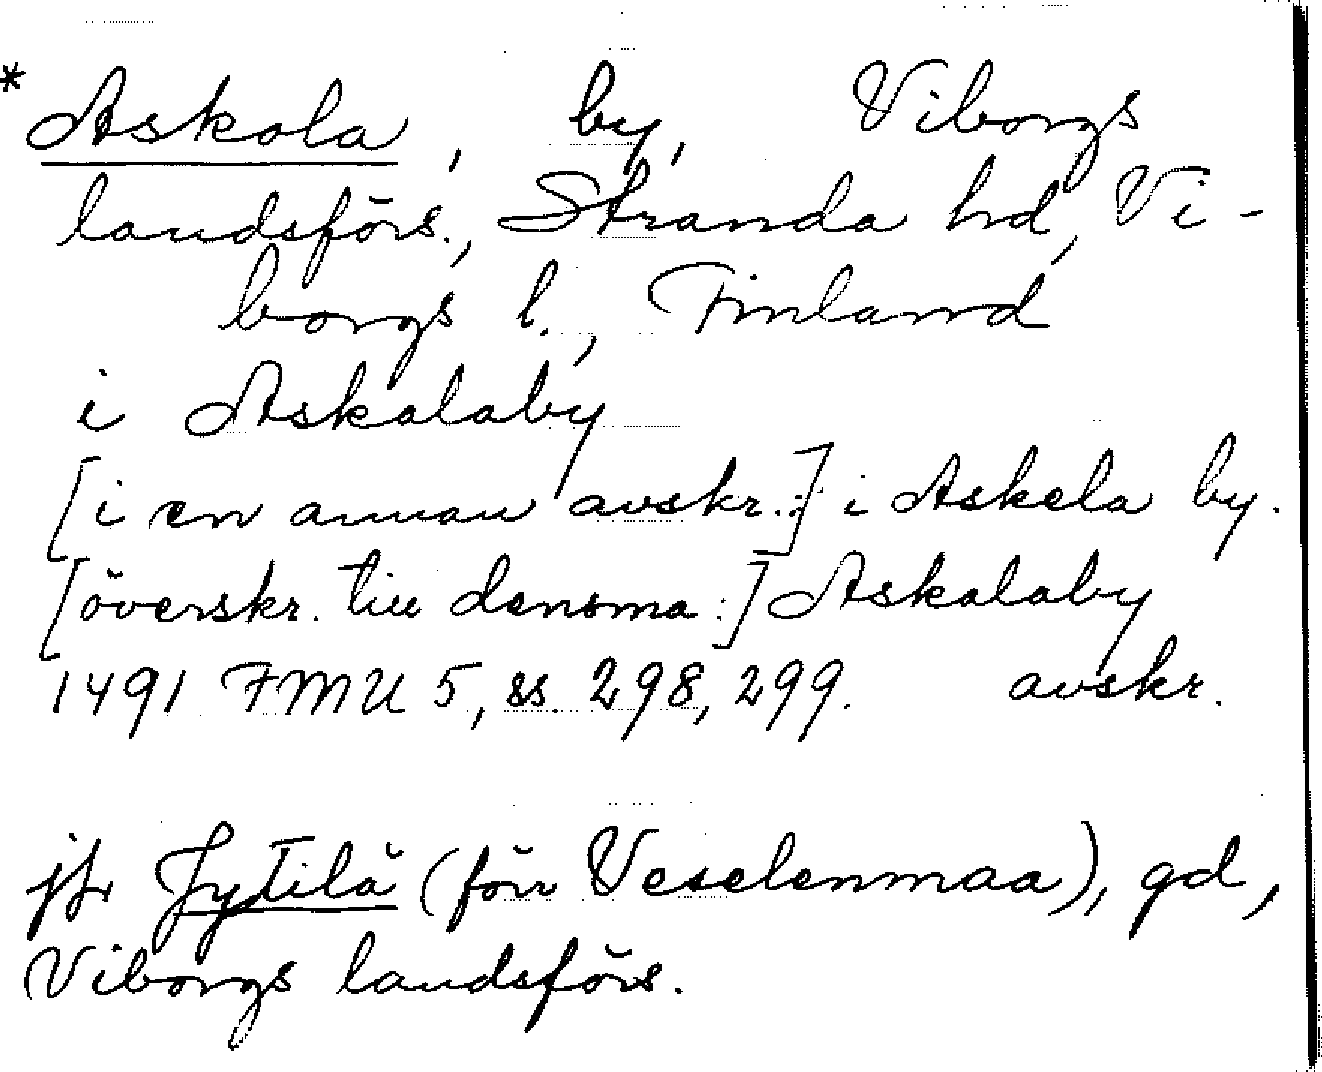 *Askola, by, Viborgs
landsförs., Stranda hd, Vi-
borgs l., Finland
i Askalaby
[i en annan avskr.:] i Askela by.
[överskr. till densma:] Askalaby
1491 FMU 5, ss. 298, 299. avskr.
jfr Jytilä (förr Veselenmaa), gd,
Viborgs landsförs.